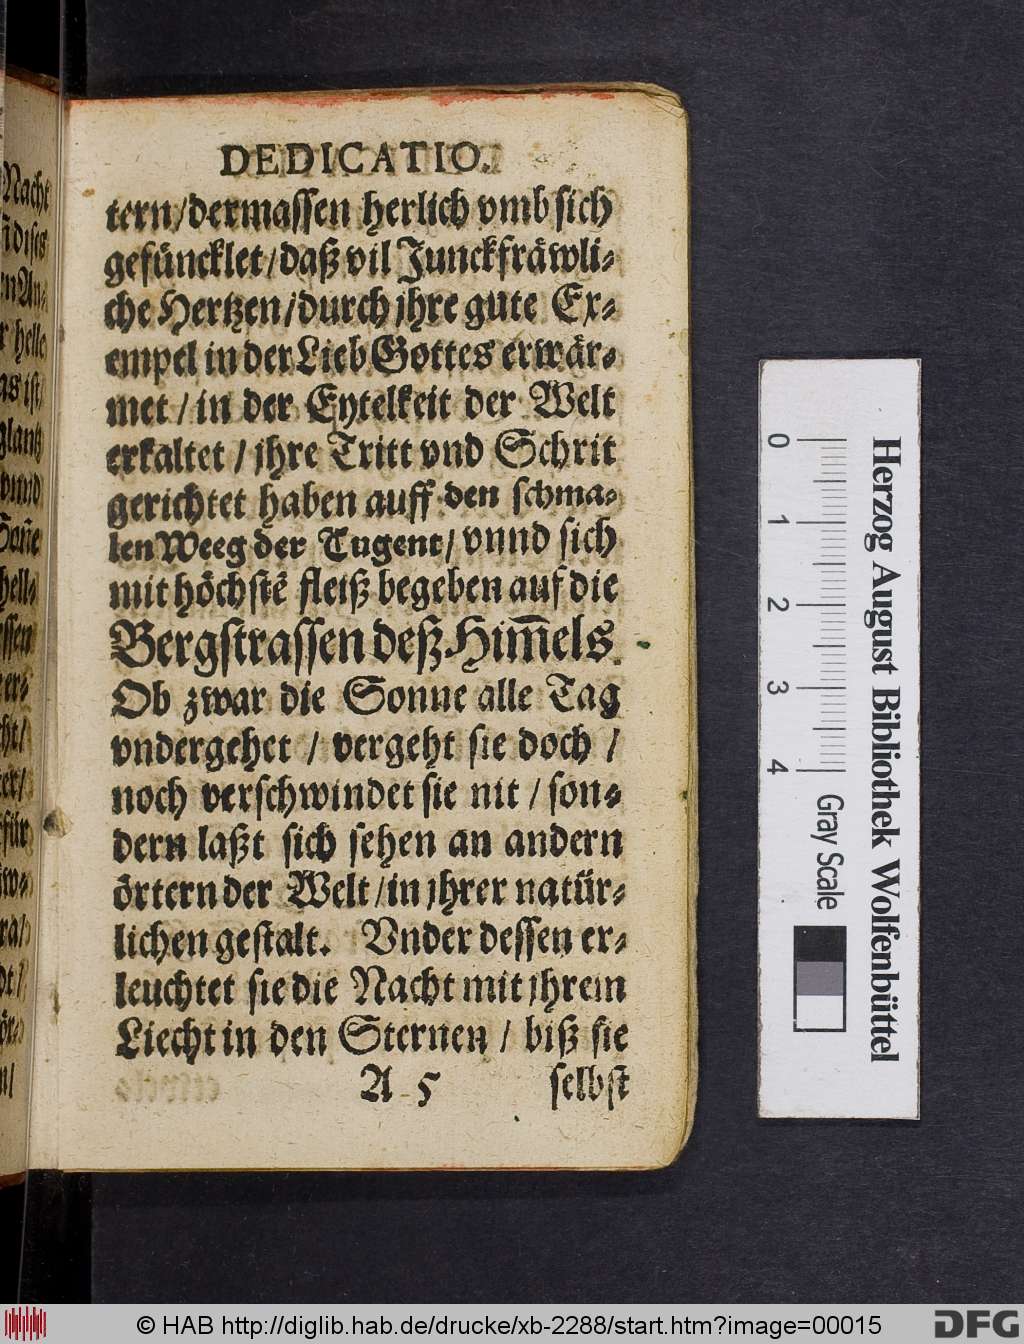 DEDICATIO.
tern/dermassen herlich vmb sich
gefüncklet/daß vil Junckfräwli-
che Hertzen/durch jhre gute Ex-
empel in der Lieb Gottes erwär-
met / in der Eytelkeit der Welt
erkaltet / jhre Tritt vnd Schrit
gerichtet haben auff den schma-
len Weeg der Tugent/ vnnd sich
mit höchstẽ fleiß begeben auf die
Bergstrassen deß Him̃els.
Ob zwar die Sonne alle Tag
vndergehet / vergeht sie doch /
noch verschwindet sie nit / son-
dern laßt sich sehen an andern
örtern der Welt/in jhrer natür-
lichen gestalt. Vnder dessen er-
leuchtet sie die Nacht mit jhrem
Liecht in den Sternen / biß sie
A 5 selbst
Nacht
dises
An-
helle
as ist/
glantz
vnnd
Son̄e
hell-
ssen
0 1 2 3 4
Gray Scale
Herzog August Bibliothek Wolfenbüttel
© HAB http://diglib.hab.de/drucke/xb-2288/start.htm?image=00015
DFG